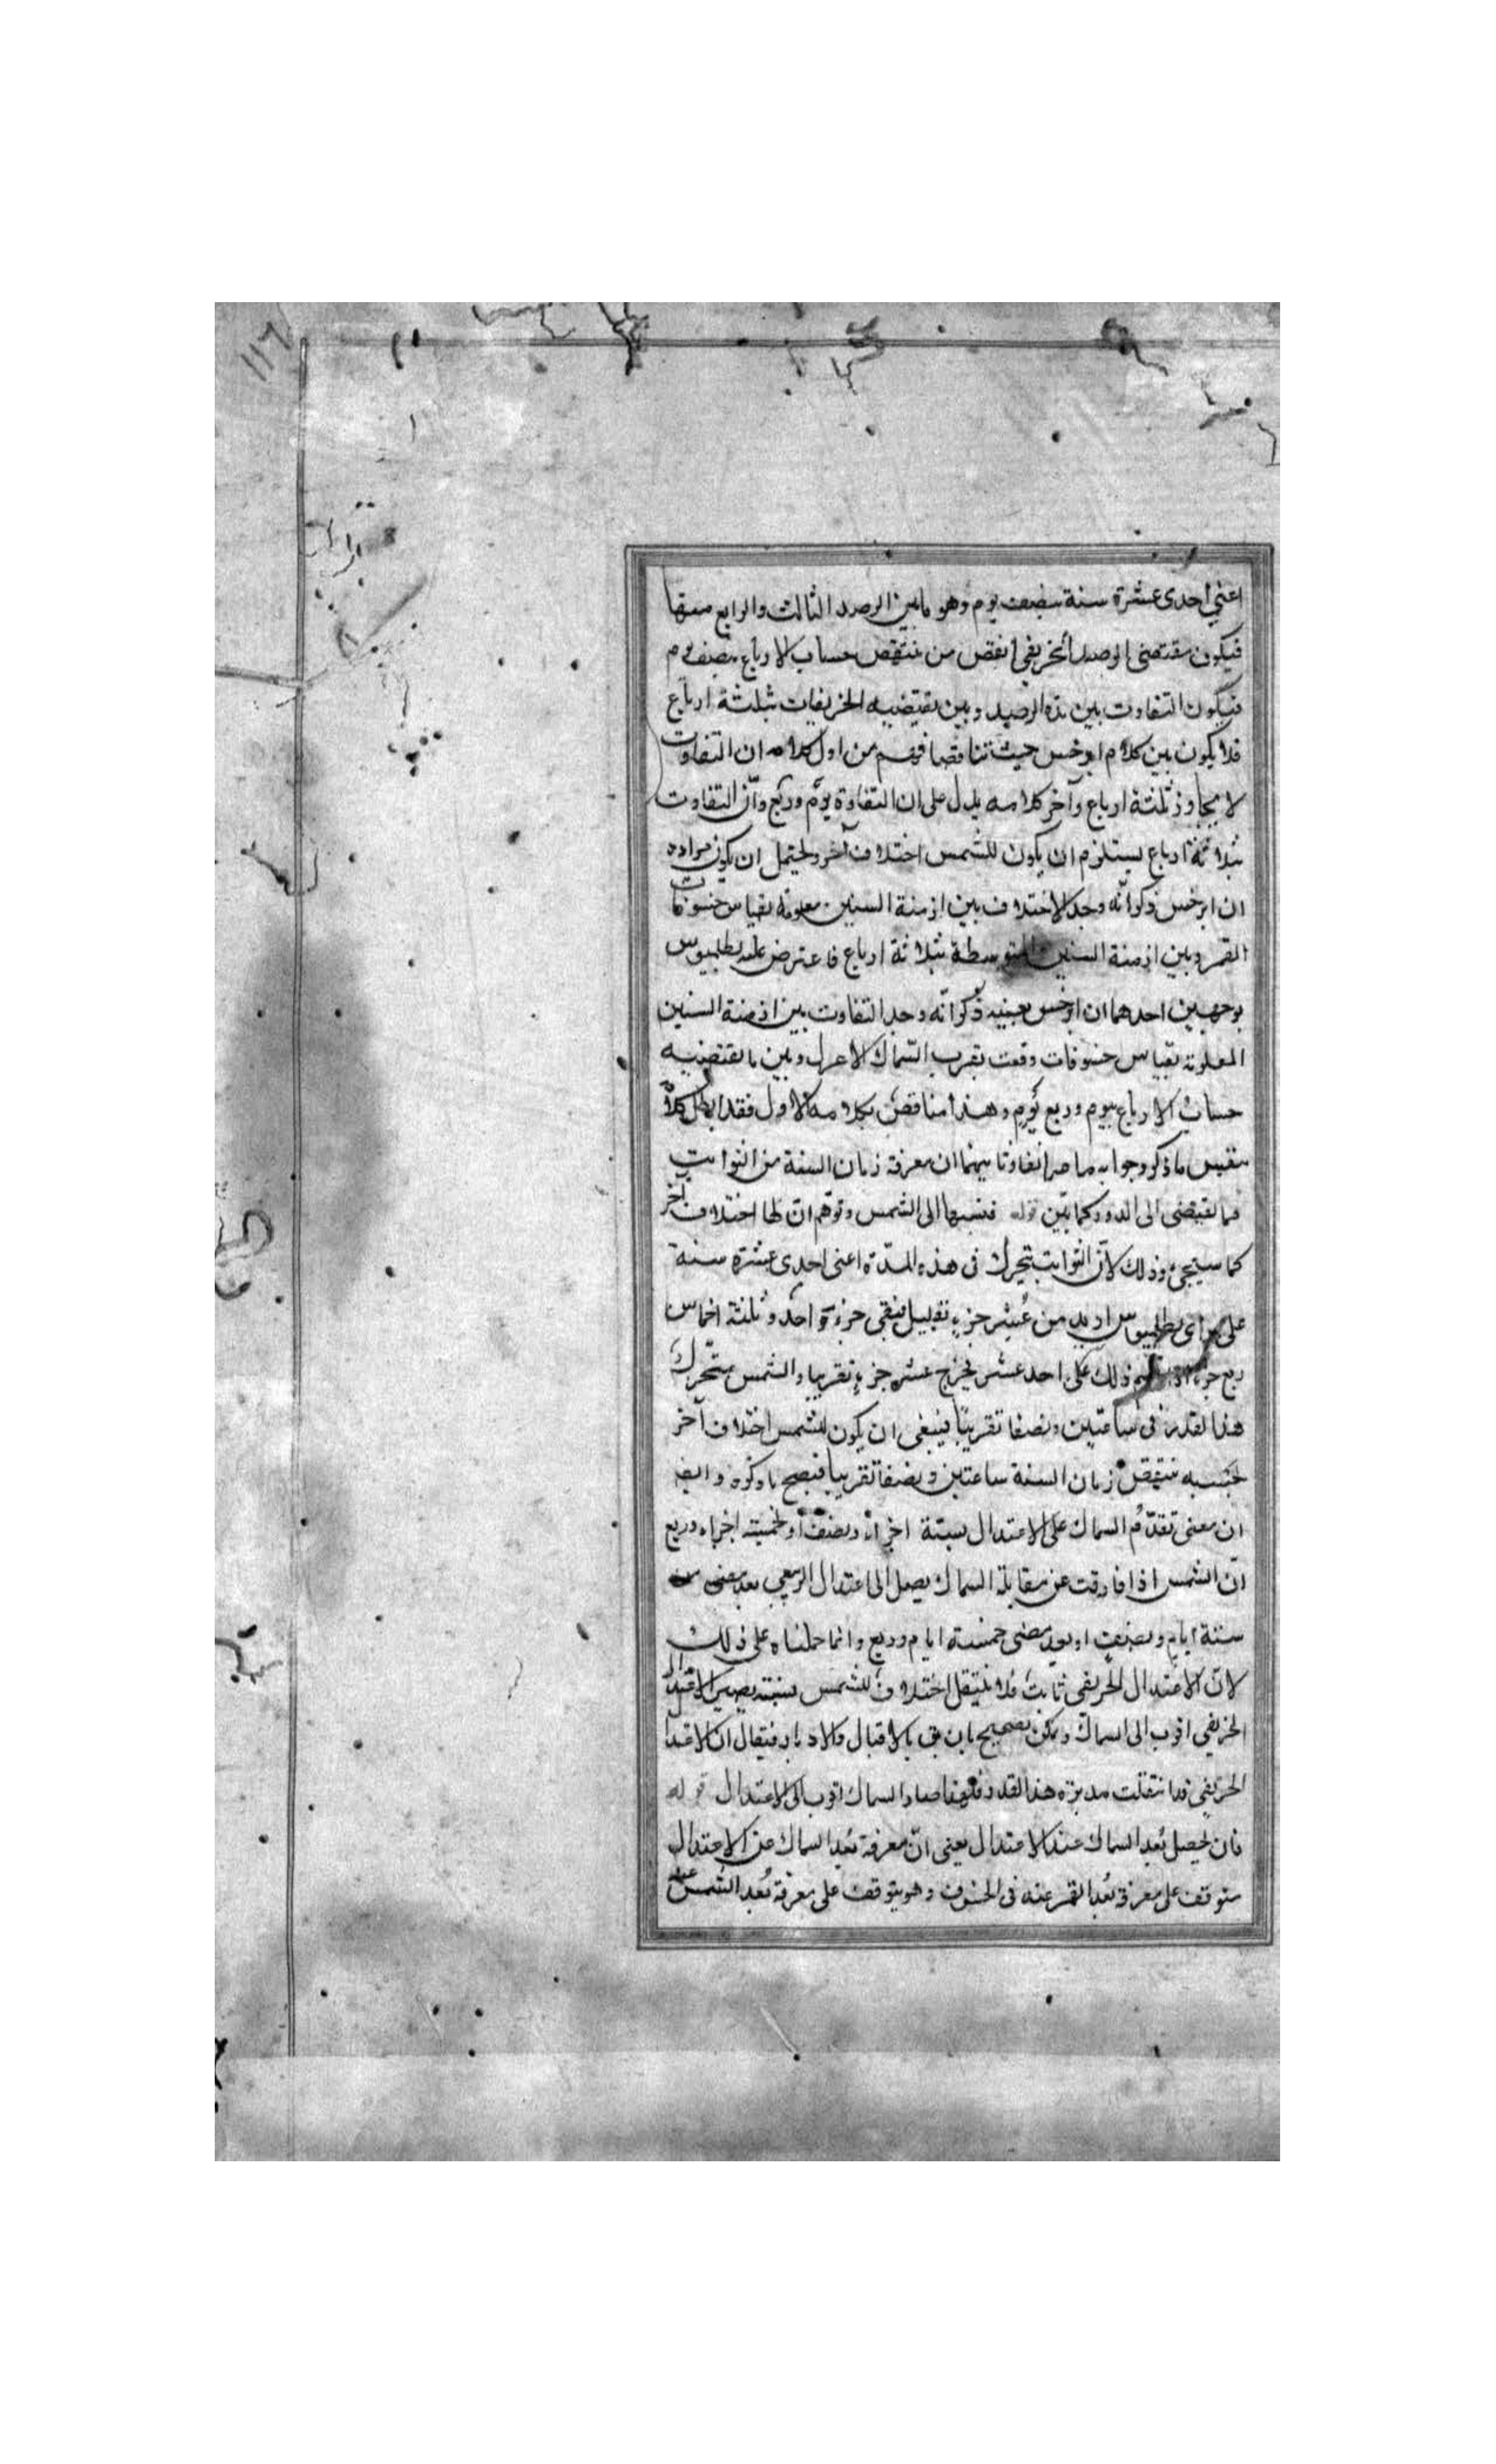 ١١٦
اعني احدى عشرة سنة بنصف يوم وهو ما بين الرصد الثالث والرابع
فيكون مقتضى الرصد الخريفي انقص من حساب الارباع بنصف يوم
فيكون التفاوت بين هذه الرصد وبين يقتضيه الخريفيات بثلثة ارباع
فلا يكون بين كلام ابرخس حيث تناقضا فهم من اول كلامه ان التفاوت
لا يجاوز ثلثة ارباع وآخر كلامه يدل على ان التفاوة يوم وربع وأن التفاوت
بثلاثة ارباع يستلزم ان يكون للشمس اختلاف آخر ويحتمل ان يكون مراده
ان ابرخس ذكر انه وجد الاختلاف بين ازمنة السنين معلومة بقياس خسوفات
القمر وبين ازمنة السنين المتوسطة بثلاثة ارباع فاعترض عليه بطلميوس
بوجهين احدهما ان ابرخس بعينه ذكر انه وجد التفاوت بين ازمنة السنين
المعلومة بقياس خسوفات وقعت بقرب السماك الاعزل وبين ما يقتضيه
حساب الارباع بيوم وربع يوم وهذا مناقض بكلامه الاول فقد ابطل كلامه
ما ذكر وجوابه ان معرفة زمان السنة من الثوابت
مما يقتضى الى الدور كما بين قوله فنسبها الى الشمس وتوهم ان لها اختلاف آخر
كما سيجئ وذلك لأن الثوابت يتحرك فى هذه المدة اعنى احدى عشرة سنة
على رأى بطلميوس ازيد من عشر جزء بقليل فبقى جزء واحد وثلثة اخماس
ربع جزء ذلك على احد عشر يخرج عشر جزء تقريبا والشمس يتحرك
هذا القدر فى ساعتين ونصفا تقريبًا فينبغى ان يكون للشمس اختلاف آخر
بحسبه ينتقص زمان السنة ساعتين ونصفا تقريبا فيصح ما ذكره وايضا
ان معنى تقدّم السماك على الاعتدال بستة اجزاء ونصف او بخمسة اجزاء وربع
ان الشمس اذا فارقت عن مقابلة السماك يصل الى اعتدال الربيعي بعد مضى
ستة ايام ونصف او بعد مضى خمسة ايام وربع وانما حملناه على ذلك
لان الاعتدال الخريفى ثابت فلا ينتقل اختلاف للشمس بسببه يصير الاعتدال
الخريفي اقرب الى السماك ويمكن تصحيح بان يق بالاقبال والادبار فيقال ان الاعتدال
الخريفي قد انتقلت مدبرة هذا القدر فلهذا صار السماك اقرب الى الاعتدال قوله
فان يحصل بُعد السماك عند الاعتدال يعنى ان معرفة بُعد السماك عن الاعتدال
يتوقف على معرفة بُعد القمر عنه فى الخسوف وهو يتوقف على معرفة بُعد الشمس عنه